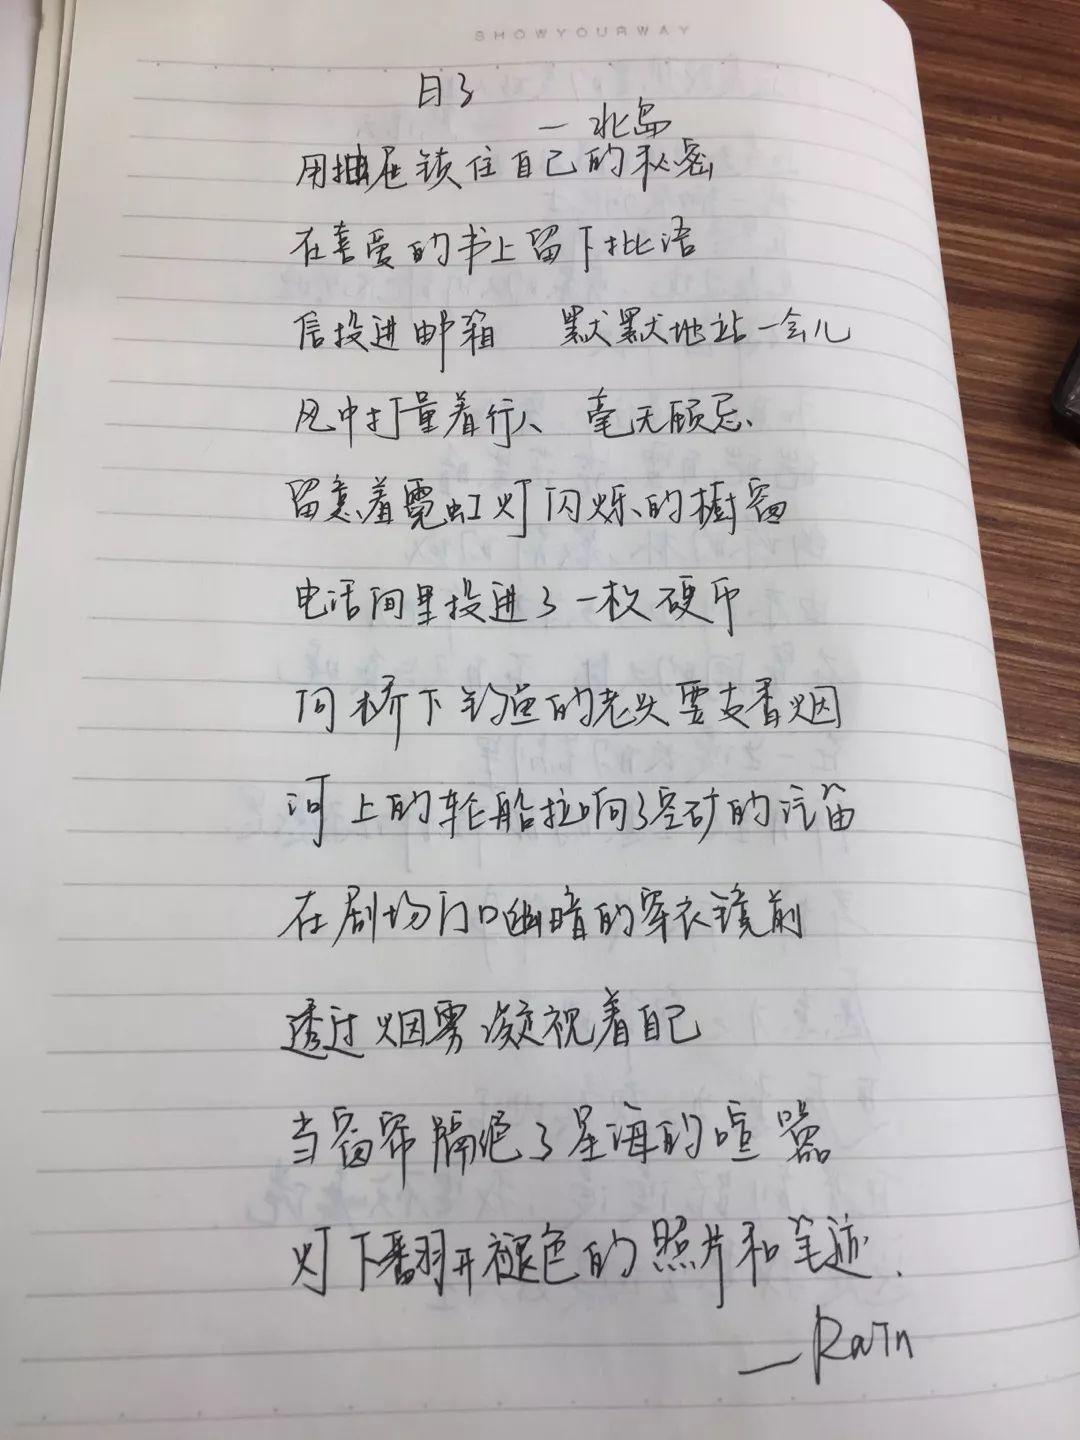 SHOWYOURWAY
日子
— 北岛
用抽屉锁住自己的秘密
在喜爱的书上留下批语
信投进邮箱 默默地站一会儿
风中打量着行人 毫无顾忌、
留意着霓虹灯闪烁的橱窗
电话间里投进了一枚硬币
问桥下钓鱼的老头要支香烟
河上的轮船拉响了空矿的汽笛
在剧场门口幽暗的穿衣镜前
透过烟雾凝视着自己
当窗帘隔绝了星海的喧嚣
灯下翻开褪色的照片和笔迹.
— Rain